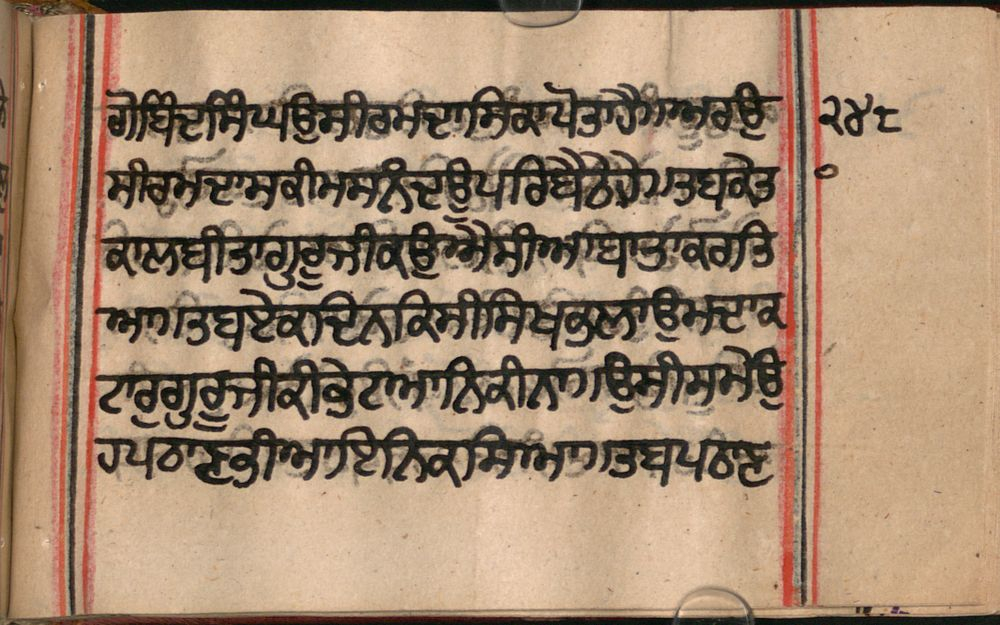 ਗੋਬਿੰਦਸਿੰਘਉਸੀਰਮਦਾਸਿਕਾਪੋਤਾਹੈ॥ਅਰਉ
ਸੀਰਮਦਾਸਕੀਮਸਨੰਦਉਪਰਿਬੈਠੇਹੈ॥ਤਬਕੇਤ
ਕਾਲਬੀਤਾਗੁਰੂਜੀਕਉਐਸੀਆਬਾਤਾਕਰਤਿ
ਆ॥ਤਬਏਕਦਿਨਕਿਸੀਸਿਖਭਲਾਉਮਦਾਕ
ਟਾਰੁਗੁਰੂਜੀਕੀਭੇਟਆਨਿਕੀਨਾ॥ਉਸੀਸਮੇਉ
ਹਪਠਾਣਭੀਆਇਨਿਕਸਿਆ॥ਤਬਪਠਾਣ
੨੪੮